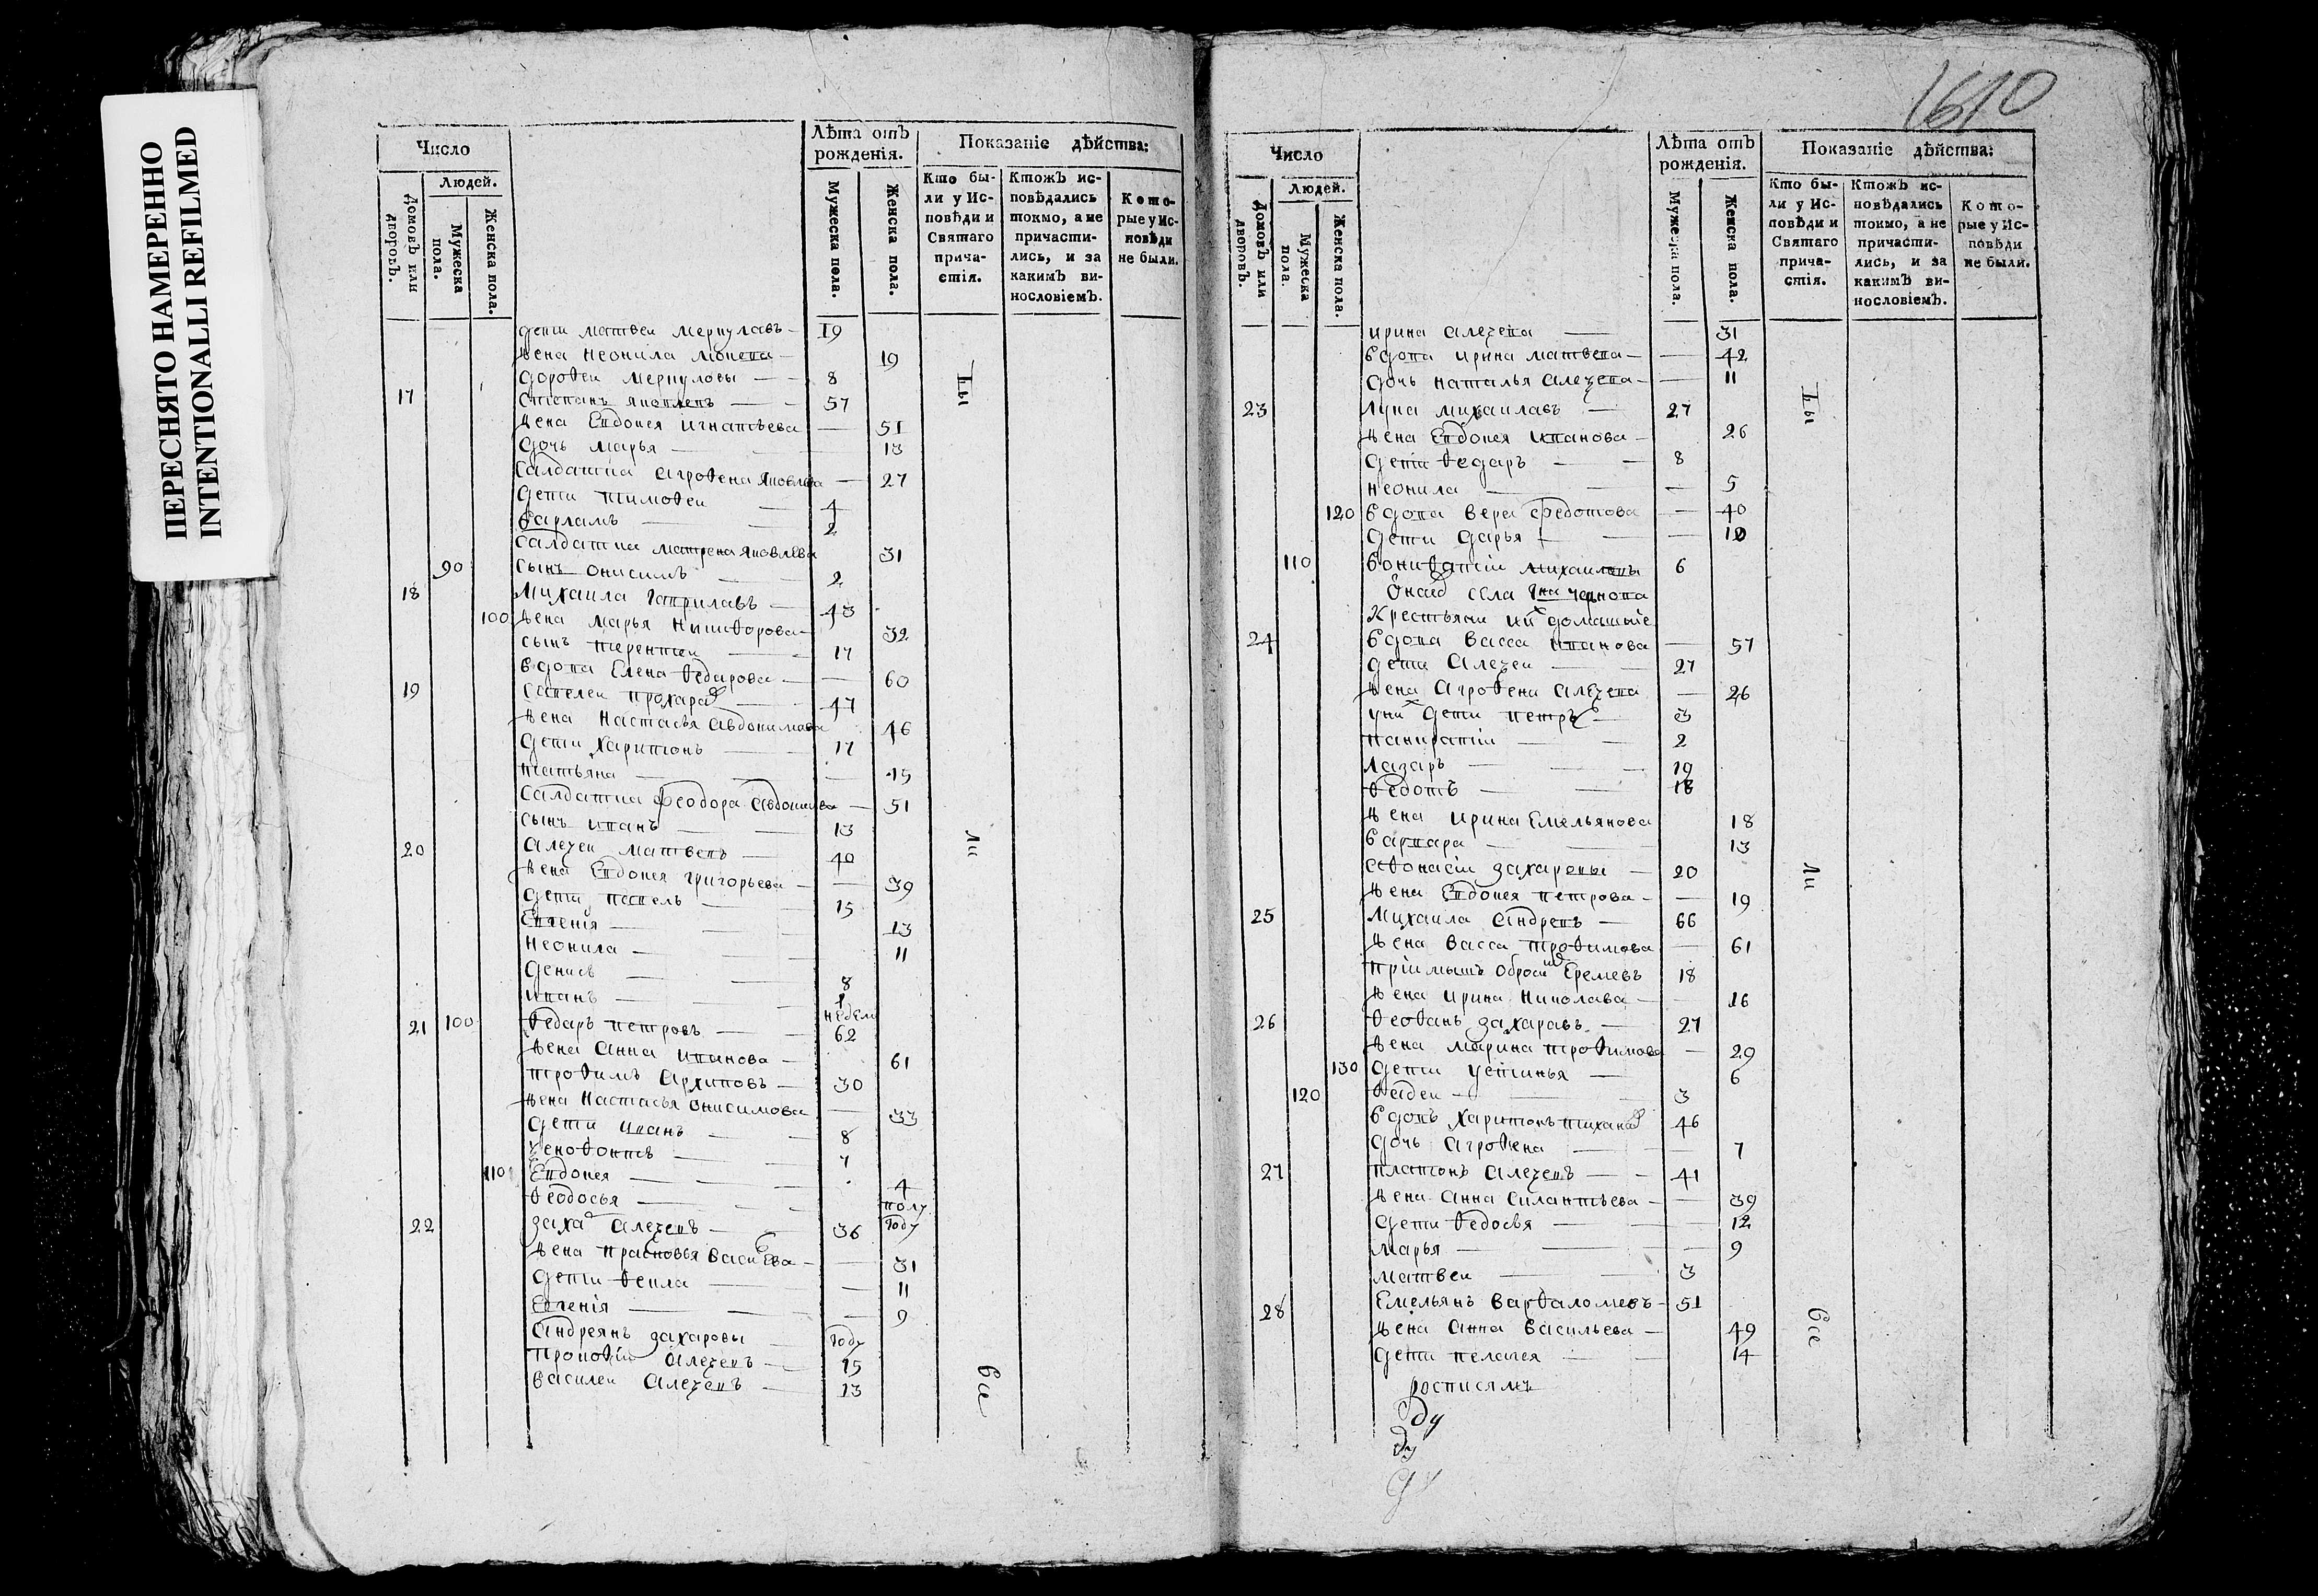 ПЕРЕСНЯТО НАМЕРЕННО
INTENTIONALLI REFILMED
1610
Число
Людей.
Домовъ или дворовъ.
Мужеска пола.
Женска пола.
Лѣта отъ рожденія.
Мужеска пола.
Женска пола.
Показаніе дѣйства:
Кто были у Исповѣди и Святаго причастія.
Ктожъ исповѣдались токмо, а не причастились, и за какимъ винословіемъ.
Которые у Исповѣди не были.
дети матвеи меркулавъ 19
жена неонила мокева 19
дорофеи меркуловы 8
17 степанъ яковлевъ 57
жена Евдокея игнатьева 51
дочь марья 13
салдатка агрофена яковлева 27
дети тимофеи 4
варламъ 2
салдатка матрена яковлева 31
90 сынъ онисимъ 2
18 михаила гаврилавъ 43
100 жена марья никифорова 32
сынъ терентеи 17
вдова Елена федарова 60
19 савелеи прохара 47
жена настасья авдокимова 46
дети харитонъ 17
татьяна 15
салдатка феодора авдокимова 51
сынъ иванъ 13
20 алеѯеи матвевъ 40
жена Евдокея григорьева 39
дети павелъ 15
Евгенія 13
неонила 11
денисъ 8
иванъ 1 недели
21 100 федаръ петровъ 62
жена анна иванова 61
трофимъ архиповъ 30
жена настасья онисимова 33
дети иванъ 8
ѯенофонтъ 7
110 Евдокея 4
феодосья полу году
22 заха алеѯевъ 36
жена прасковья васи ева 31
дети фекла 11
Евгенія 9
андреянъ захаровы году
прокофіи алеѯевъ 15
василеи алеѯевъ 13
бы
ли
все
Число
Людей.
Домовъ или дворовъ.
Мужеска пола.
Женска пола.
Лѣта отъ рожденія.
Мужеска пола.
Женска пола.
Показаніе дѣйства:
Кто были у Исповѣди и Святаго причастія.
Ктожъ исповѣдались токмо, а не причастились, и за какимъ винословіемъ.
Которые у Исповѣди не были.
ирина алеѯева 31
вдова ирина матвева 42
дочь наталья алеѯева 11
23 лука михаилавъ 27
жена Евдокея иванова 26
дети федаръ 8
неонила 5
120 вдова вера федотова 40
дети дарья 10
110 вонифатіи михаиловы 6
онаго села чернова
крестьяни их домашніе
24 вдова васса иванова 57
дети алеѯеи 27
жена агрофена алеѯева 26
у них дети петръ 3
панкратіи 2
лазаръ 19
федотъ 18
жена ирина Емельянова 18
варвара 13
афонасіи захаровы 20
жена Евдокея петрова 19
25 михаила андревъ 66
жена васса трофимова 61
пріимышъ Еремевъ 18
жена ирина николава 16
26 феофанъ захаравъ 27
жена марина трофимова 29
130 дети устинья 6
120 фадеи 3
вдовъ харитонъ тихано 46
дочь агрофена 7
27 платонъ алеѯевъ 41
жена анна силантьева 39
дети федосья 12
марья 9
матвеи 3
28 Емельянъ варфаломевъ 51
жена анна васильева 49
дети пелагея 14
росписямъ
ду
ду
ду
бы
ли
все